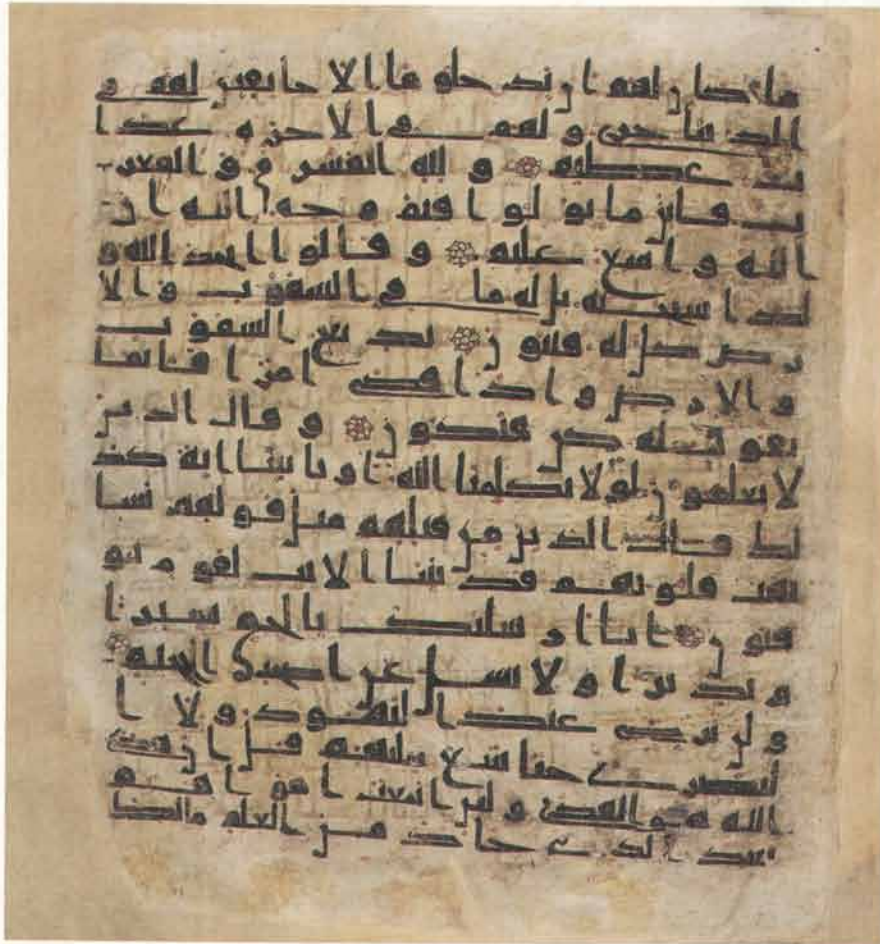 ما كان لهم ان يدخلوها الا خايفين لهم في
الدنيا خزي ولهم في الاخرة عذا
ب عظيم ۝ ولله المشرق والمغر
ب فاينما تولوا فثم وجه الله ان
الله واسع عليم ۝ وقالوا اتخذ الله و
لدا سبحنه بل له ما في السموت والا
رض كل له قنتون ۝ بديع السموت
والارض واذا قضى امرا فانما
يقول له كن فيكون ۝ وقال الذين
لا يعلمون لولا يكلمنا الله او تاتينا اية كذ
لك قال الذين من قبلهم مثل قولهم تشا
بهت قلوبهم قد بينا الايت لقوم يو
قنون ۝ انا ارسلنك بالحق بشيرا
ونذيرا ولا تسل عن اصحب الجحيم ۝
ولن ترضى عنك اليهود ولا ا
لنصرى حتا تتبع ملتهم قل ان هدى
الله هو الهدى ولين اتبعت اهواهم
بعد الذي جاك من العلم مالك